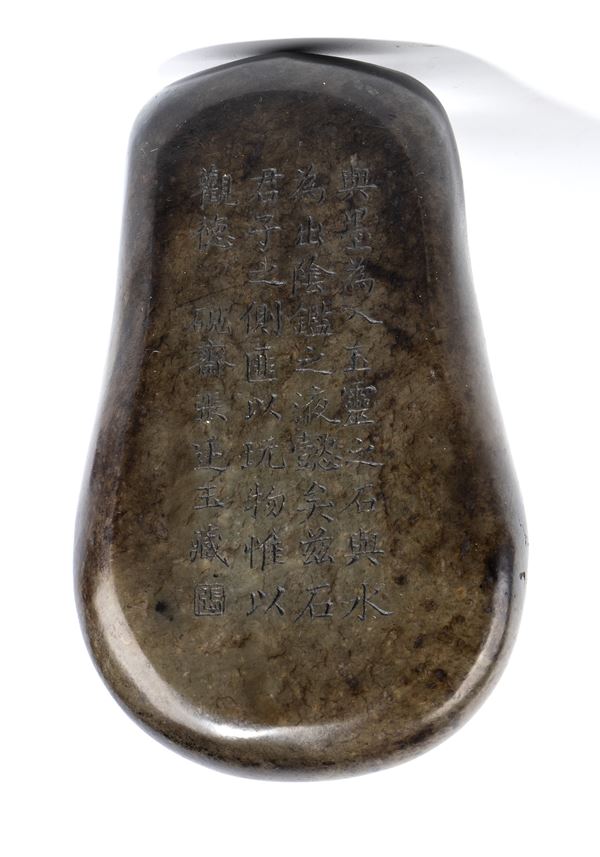 與墨為入玉靈之石與水
為出陰鑑之液懿矣茲石
君子之側匪以玩物惟以
觀德 硯齋張廷玉藏